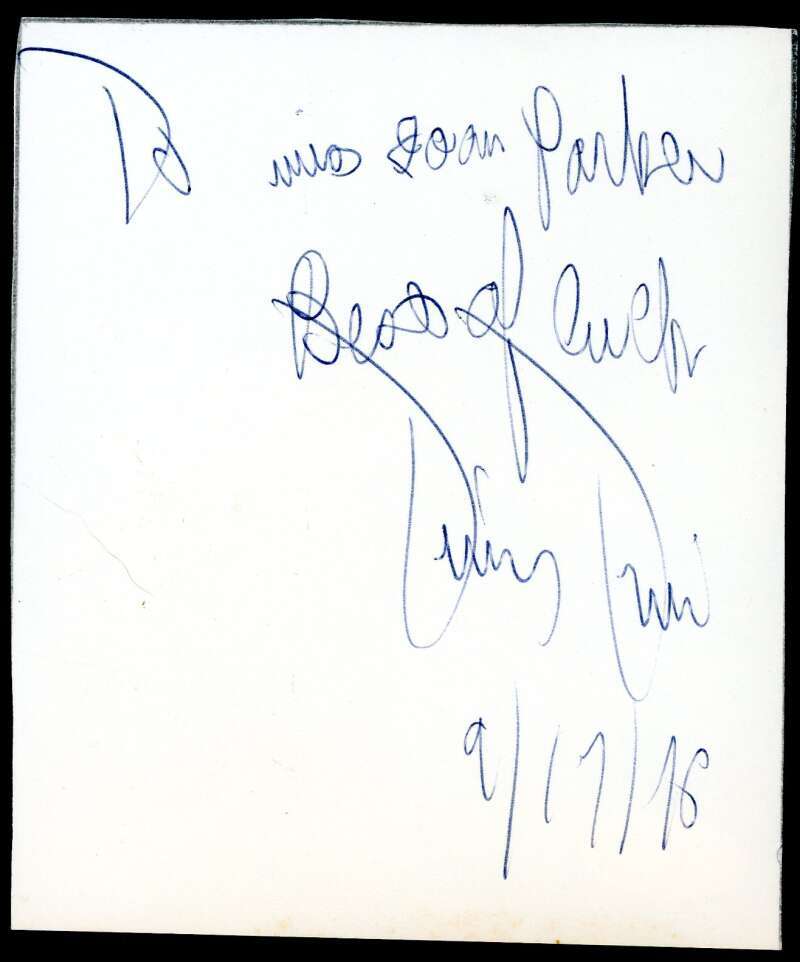 To miss Joan Parker
Best of luck
9/17/78